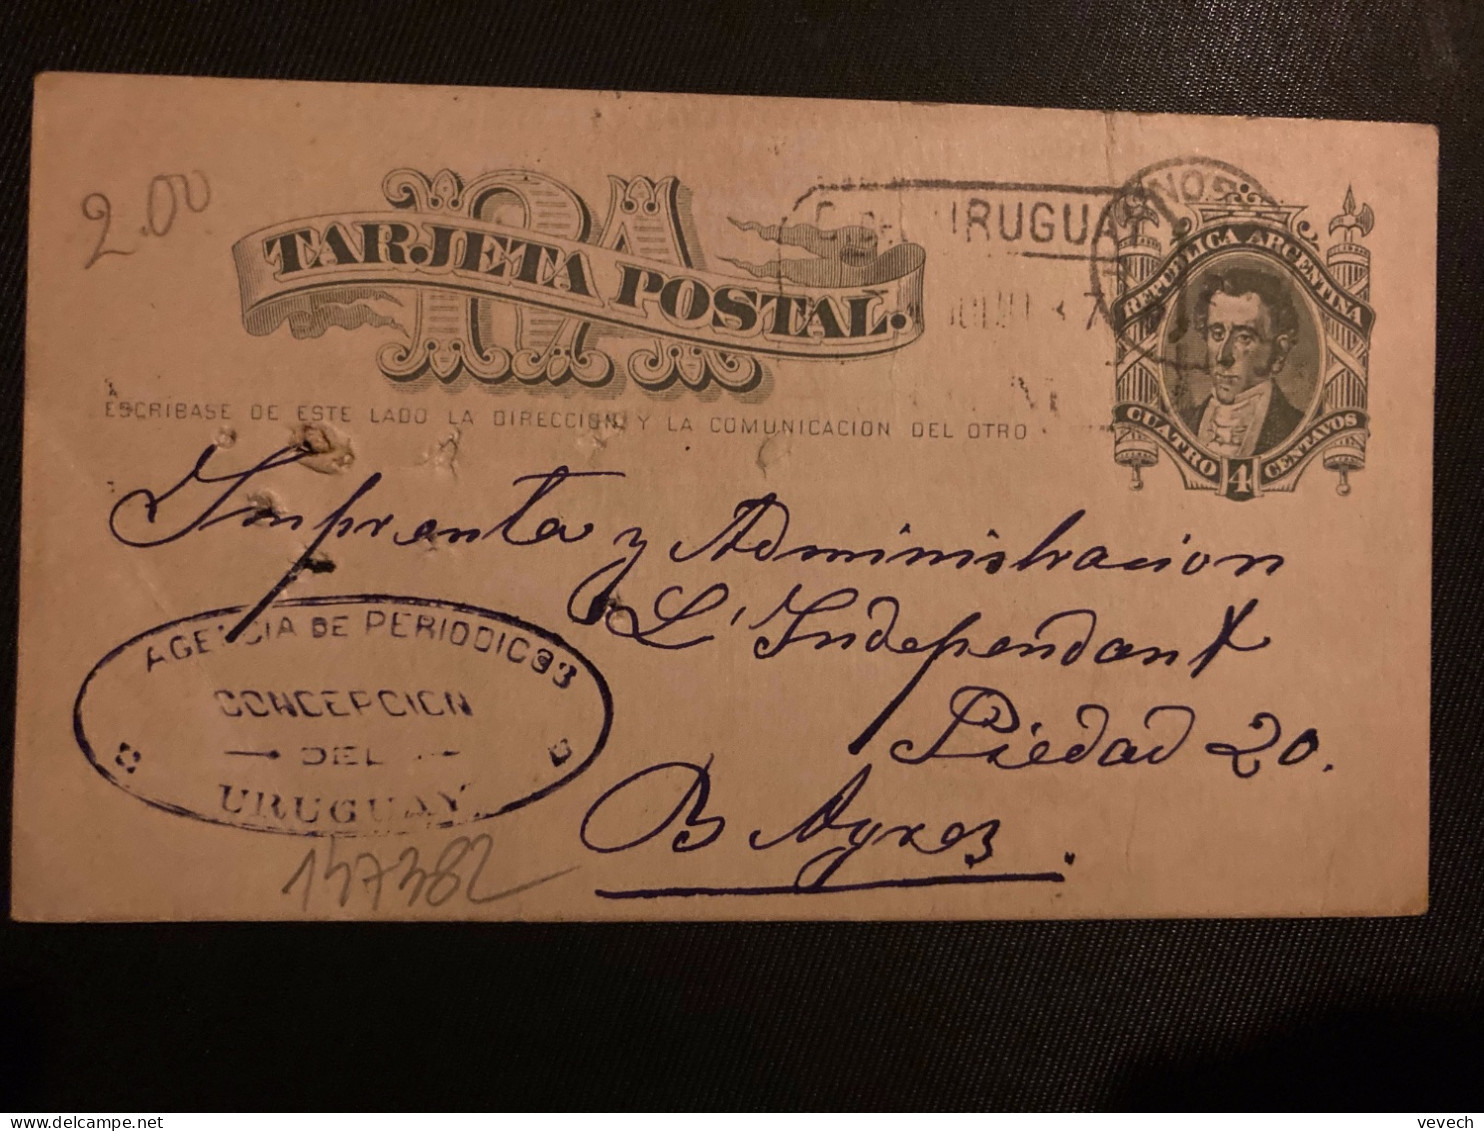 2.00
RA
TARJETA POSTAL.
C. DEL URUGUAY
REPUBLICA ARGENTINA
CUATRO 4 CENTAVOS
ESCRIBASE DE ESTE LADO LA DIRECCION Y LA COMUNICACION DEL OTRO
Imprenta y Administracion
L'Independant
Piedad 20.
B Ayres.
AGENCIA DE PERIODICOS
CONCEPCION
DEL
URUGUAY.
147382
vevech